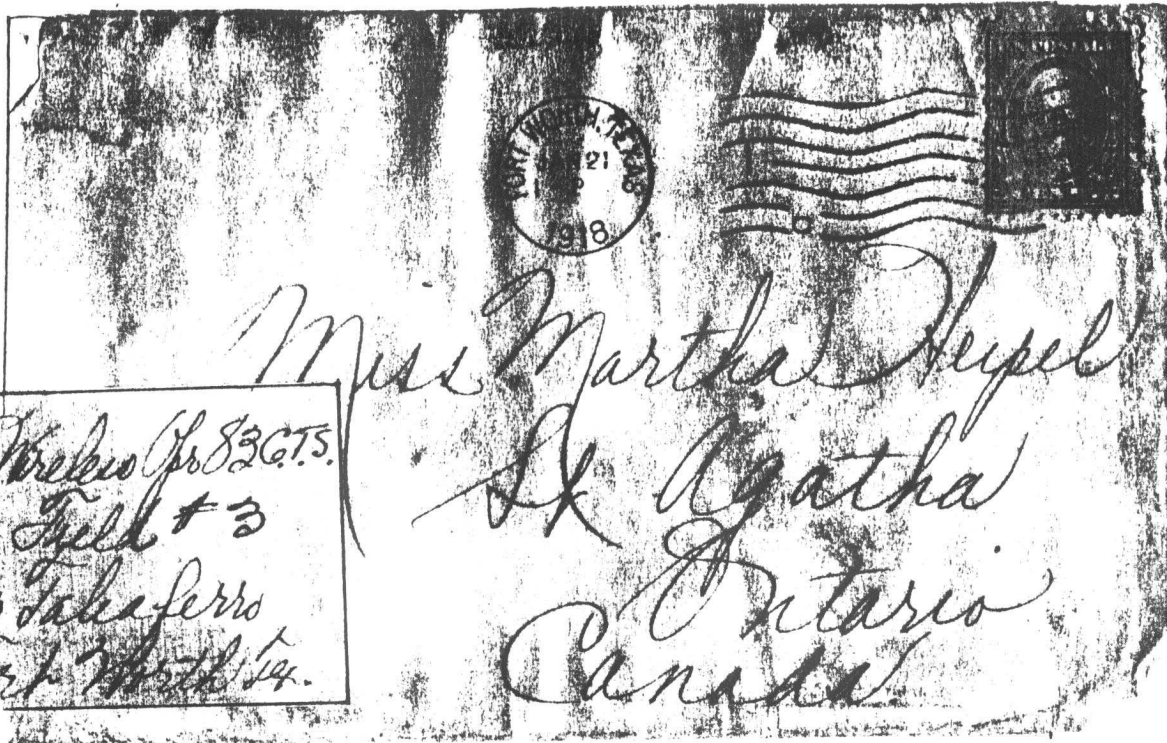 FORT WORTH, TEXAS
21
1918
Miss Martha Heipel
St Agatha
Ontario
Canada
Wireless Opr 83 C.T.S.
Field # 3
Taliaferro
Fort Worth Tx.